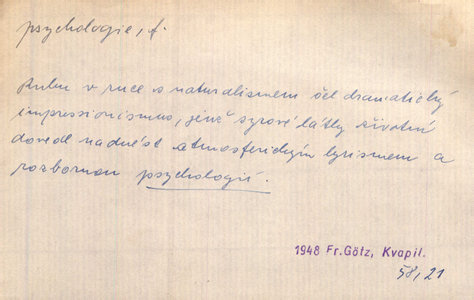 psychologie, f.
Ruku v ruce s naturalismem šel dramatický
impressionismus, jenž syrové látky životní
dovedl nadnést atmosferickým lyrismem a
rozbornou psychologií.
1948 Fr. Götz, Kvapil.
58, 21